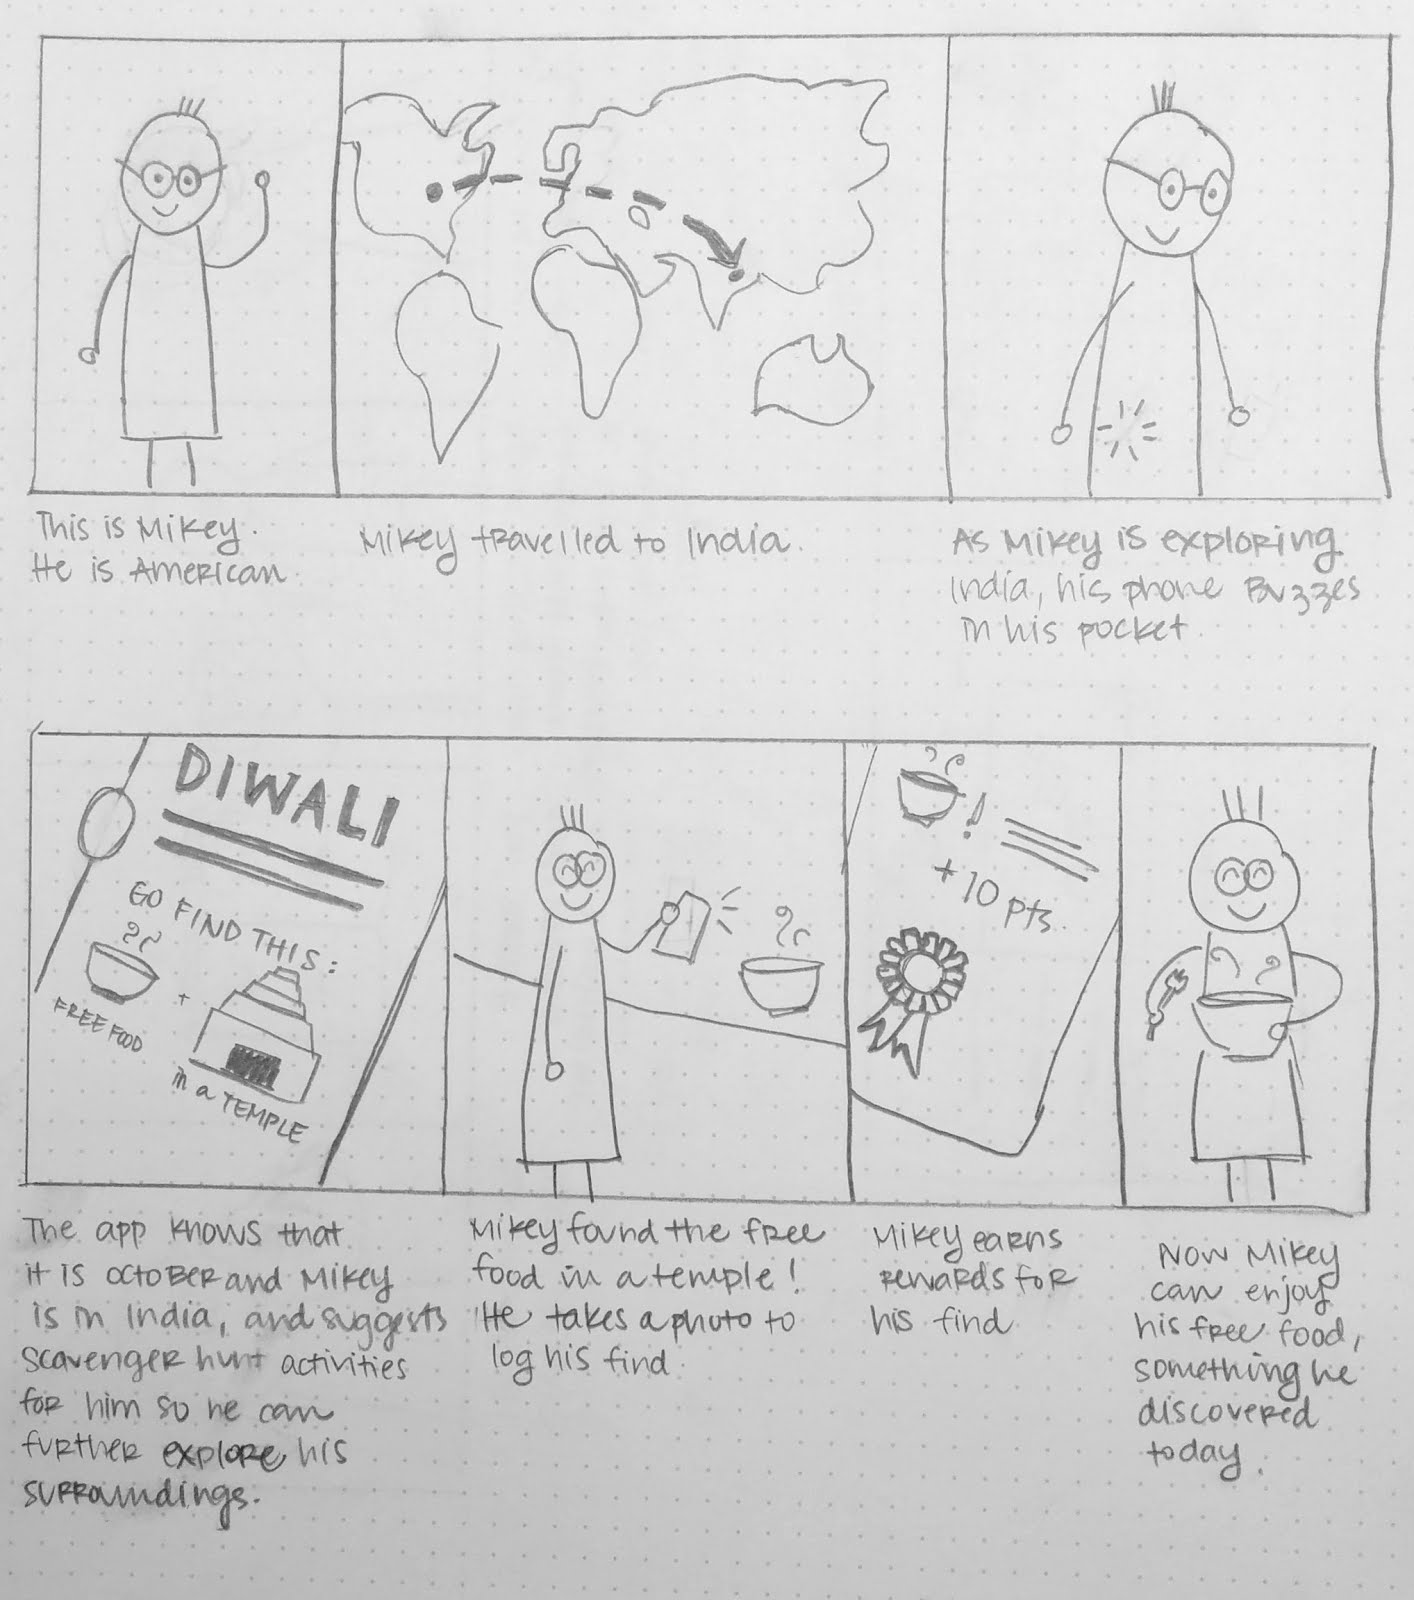 This is Mikey.
He is American
Mikey travelled to India.
As Mikey is exploring
India, his phone Buzzes
in his pocket.
DIWALI
GO FIND THIS:
FREE FOOD
+
in a TEMPLE
!
+10 pts.
The app knows that
it is october and Mikey
is in India, and suggests
scavenger hunt activities
for him so he can
further explore his
surroundings.
Mikey found the free
food in a temple!
He takes a photo to
log his find.
Mikey earns
rewards for
his find
Now Mikey
can enjoy
his free food,
something he
discovered
today.